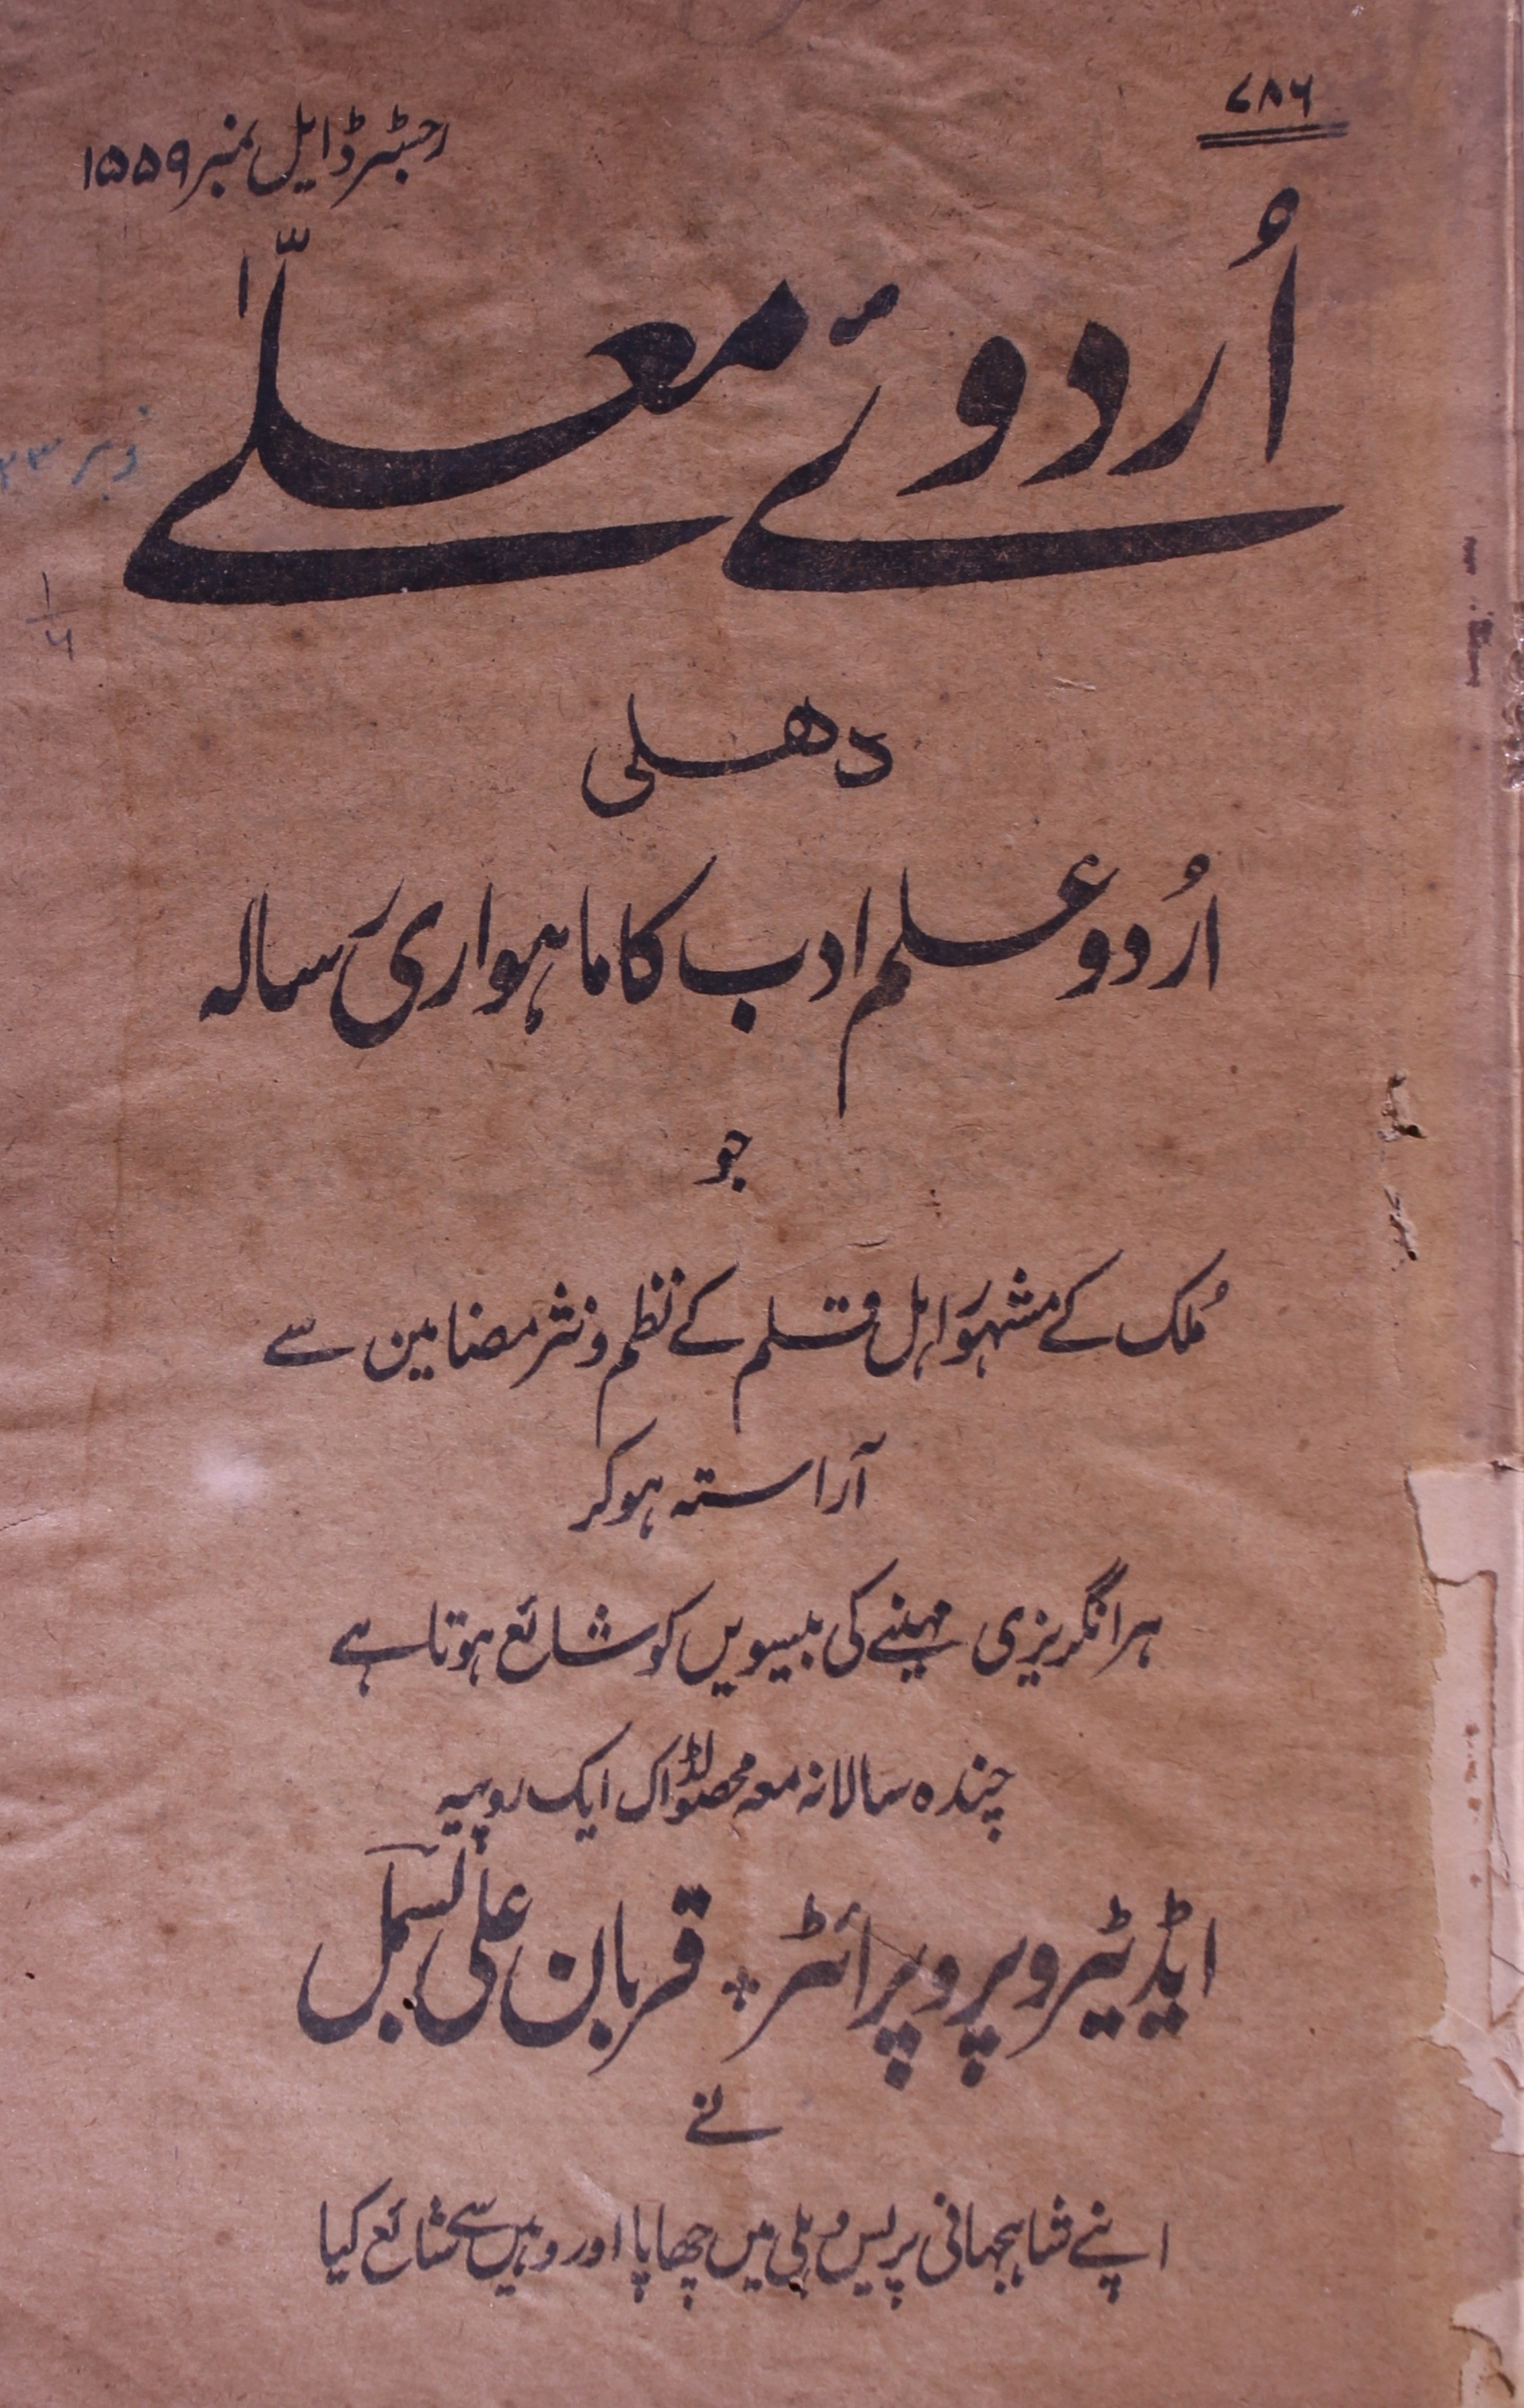 ۷۸۶
رجسٹرڈ ایل نمبر ۱۵۵۹
اُردوئے معلّےٰ
دھلی
اُردو علم ادب کا ماہواری رسالہ
جو
مُلک کے مشہور اہل قلم کے نظم و نثر مضامین سے
آراستہ ہوکر
ہر انگریزی مہینے کی بیسویں کو شائع ہوتا ہے
چندہ سالانہ معہ محصولڈاک ایک روپیہ
ایڈیٹر و پروپرائٹر + قربان علی بسمل
نے
اپنے شاہجہانی پریس دہلی میں چھاپا اور وہیں سے شائع کیا
۱/۶